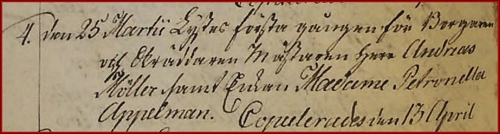 4. den 25 Martii Lystes första gången för Borgaren
och Skräddaren Mästaren Herr Andreas
Möller samt Enkan Madame Petronella
Appelman. Copulerades den 13 April